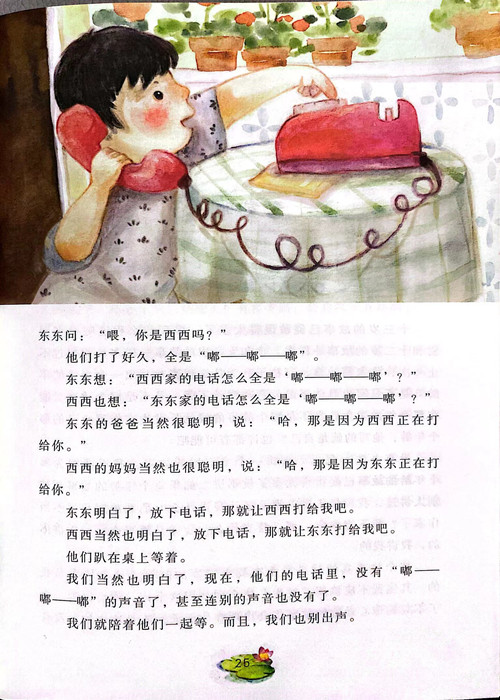 东东问：“喂，你是西西吗？”
他们打了好久，全是“嘟——嘟——嘟”。
东东想：“西西家的电话怎么全是‘嘟——嘟——嘟’？”
西西也想：“东东家的电话怎么全是‘嘟——嘟——嘟’？”
东东的爸爸当然很聪明，说：“哈，那是因为西西正在打
给你。”
西西的妈妈当然也很聪明，说：“哈，那是因为东东正在打
给你。”
东东明白了，放下电话，那就让西西打给我吧。
西西当然也明白了，放下电话，那就让东东打给我吧。
他们趴在桌上等着。
我们当然也明白了，现在，他们的电话里，没有“嘟——
嘟——嘟”的声音了，甚至连别的声音也没有了。
我们就陪着他们一起等。而且，我们也别出声。
26